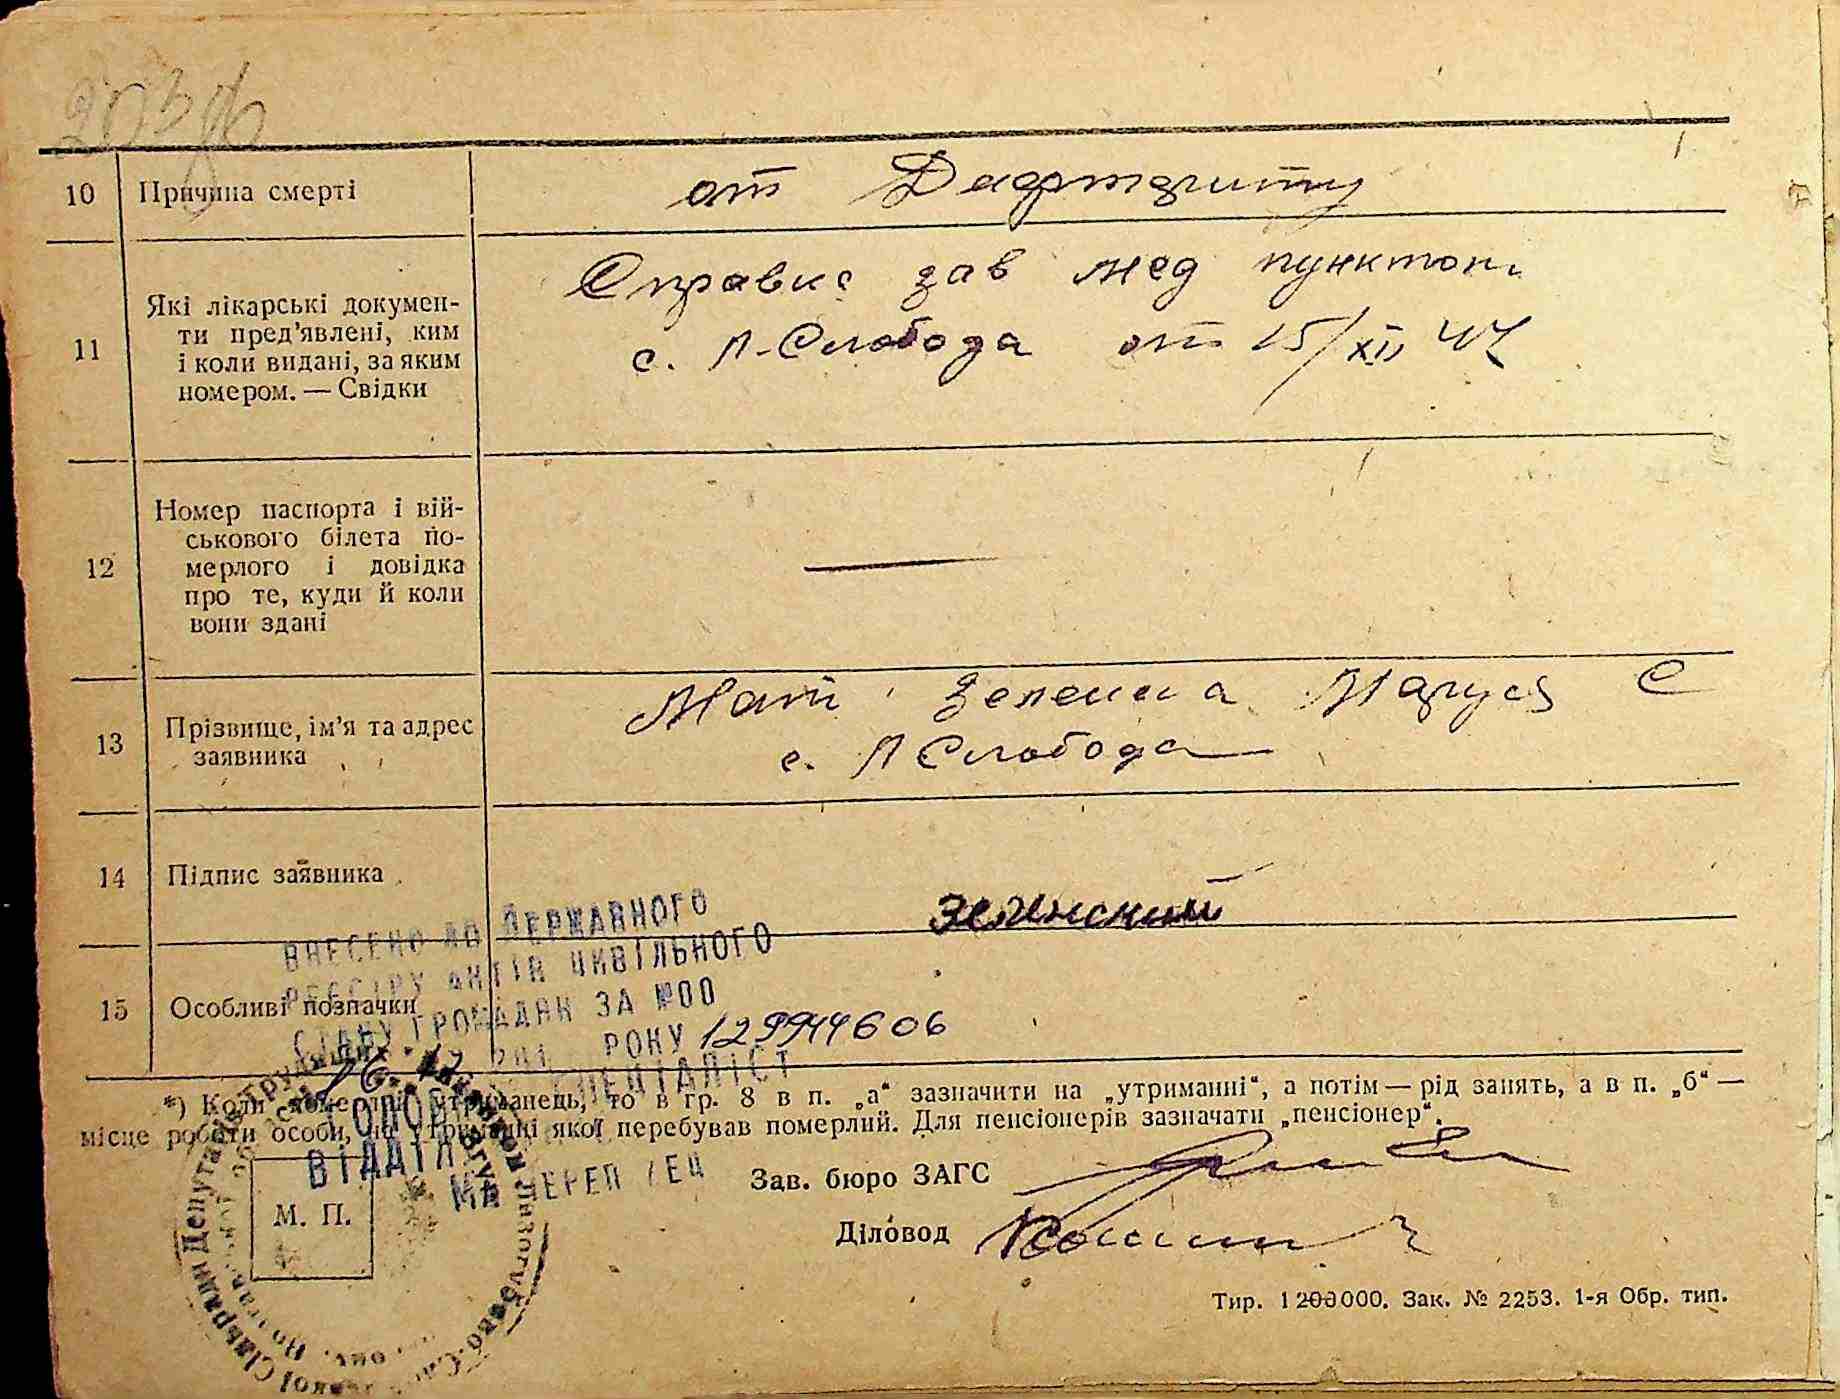 10 Причина смерті от
11 Які лікарські докумен-
ти пред'явлені, ким
і коли видані, за яким
номером. — Свідки
зав мед пунктом
с. Л-Слобода от 15/XII 47
12 Номер паспорта і вій-
ськового білета по-
мерлого і довідка
про те, куди й коли
вони здані
13 Прізвище, ім'я та адрес
заявника
Мати Маруся С
с. Л Слобода
14 Підпис заявника
Зеленский
15 Особливі позначки
ВНЕСЕНО ДО ДЕРЖАВНОГО
РЕЄСТРУ АКТІВ ЦИВІЛЬНОГО
СТАНУ ГРОМАДЯН ЗА №00
РОКУ 12994606
СПЕЦІАЛІСТ
ВІДДІЛ
*) Коли померлий утриманець, то в гр. 8 в п. „а“ зазначити на „утриманні“, а потім — рід занять, а в п. „б“ —
місце роботи особи, на утриманні якої перебував померлий. Для пенсіонерів зазначати „пенсіонер“.
М. П.
Зав. бюро ЗАГС
Діловод
Тир. 1200000. Зак. № 2253. 1-я Обр. тип.